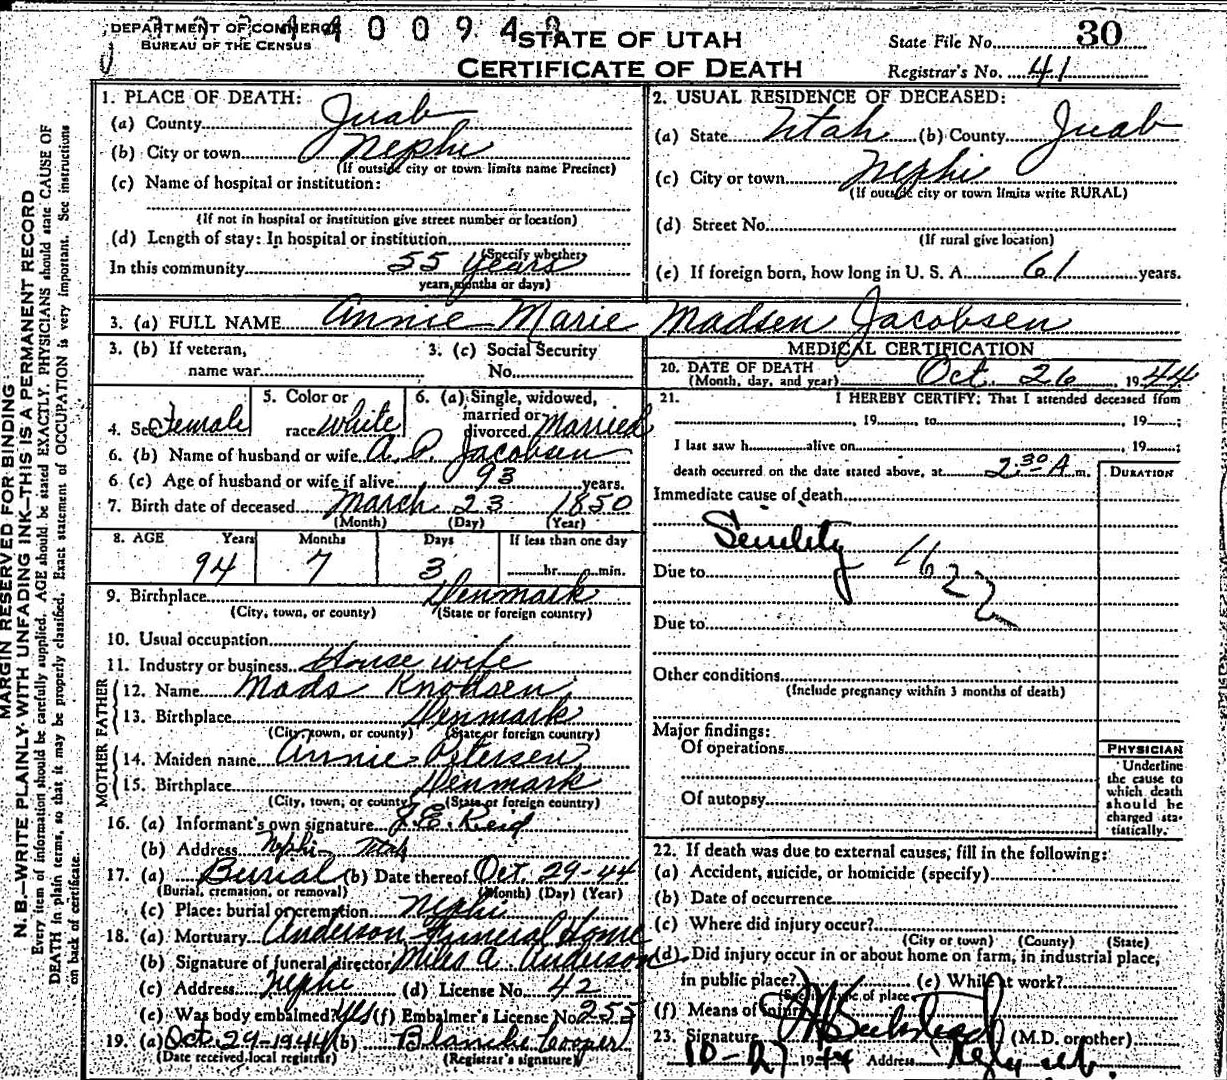 DEPARTMENT OF COMMERCE
BUREAU OF THE CENSUS
STATE OF UTAH
CERTIFICATE OF DEATH
State File No. 30
Registrar's No. 41
MARGIN RESERVED FOR BINDING
N. B.—WRITE PLAINLY WITH UNFADING INK—THIS IS A PERMANENT RECORD
Every item of information should be carefully supplied. AGE should be stated EXACTLY. PHYSICIANS should state CAUSE OF
DEATH in plain terms, so that it may be properly classified. Exact statement of OCCUPATION is very important. See instructions
on back of certificate.
1. PLACE OF DEATH:
(a) County Juab
(b) City or town Nephi
(If outside city or town limits name Precinct)
(c) Name of hospital or institution:
(If not in hospital or institution give street number or location)
(d) Length of stay: In hospital or institution
(Specify whether
In this community 55 years
years, months or days)
2. USUAL RESIDENCE OF DECEASED:
(a) State Utah (b) County Juab
(c) City or town Nephi
(If outside city or town limits write RURAL)
(d) Street No.
(If rural give location)
(e) If foreign born, how long in U. S. A. 61 years.
3. (a) FULL NAME Annie Marie Madsen Jacobsen
3. (b) If veteran, name war
3. (c) Social Security No.
4. Sex Female
5. Color or race White
6. (a) Single, widowed, married or divorced Married
6. (b) Name of husband or wife A. P. Jacobsen
6 (c) Age of husband or wife if alive 93 years.
7. Birth date of deceased March 23 1850
(Month) (Day) (Year)
8. AGE Years Months Days If less than one day
94 7 3 hr. min.
9. Birthplace Denmark
(City, town, or county) (State or foreign country)
10. Usual occupation
11. Industry or business House wife
FATHER
12. Name Mads Knodsen
13. Birthplace Denmark
(City, town, or county) (State or foreign country)
MOTHER
14. Maiden name Annie Petersen
15. Birthplace Denmark
(City, town, or county) (State or foreign country)
16. (a) Informant's own signature J. E. Reid
(b) Address Nephi Utah
17. (a) Burial (b) Date thereof Oct. 29-44
(Burial, cremation, or removal) (Month) (Day) (Year)
(c) Place: burial or cremation Nephi
18. (a) Mortuary Anderson Funeral Home
(b) Signature of funeral director Miles A. Anderson
(c) Address Nephi (d) License No. 42
(e) Was body embalmed? Yes (f) Embalmer's License No. 255
19. (a) Oct. 29-1944 (b) Blanche Cooper
(Date received local registrar) (Registrar's signature)
MEDICAL CERTIFICATION
20. DATE OF DEATH
(Month, day, and year) Oct. 26, 1944
21. I HEREBY CERTIFY: That I attended deceased from
, 19 , to , 19 ;
I last saw h alive on , 19 ;
death occurred on the date stated above, at 2:30 A m.
DURATION
Immediate cause of death
Senility 1622
Due to
Due to
Other conditions
(Include pregnancy within 3 months of death)
Major findings:
Of operations
Of autopsy
PHYSICIAN
Underline
the cause to
which death
should be
charged sta-
tistically.
22. If death was due to external causes, fill in the following:
(a) Accident, suicide, or homicide (specify)
(b) Date of occurrence
(c) Where did injury occur?
(City or town) (County) (State)
(d) Did injury occur in or about home on farm, in industrial place,
in public place? (e) While at work?
(Specify type of place
(f) Means of injury
23. Signature (M.D. or other)
10-27 1944 Address